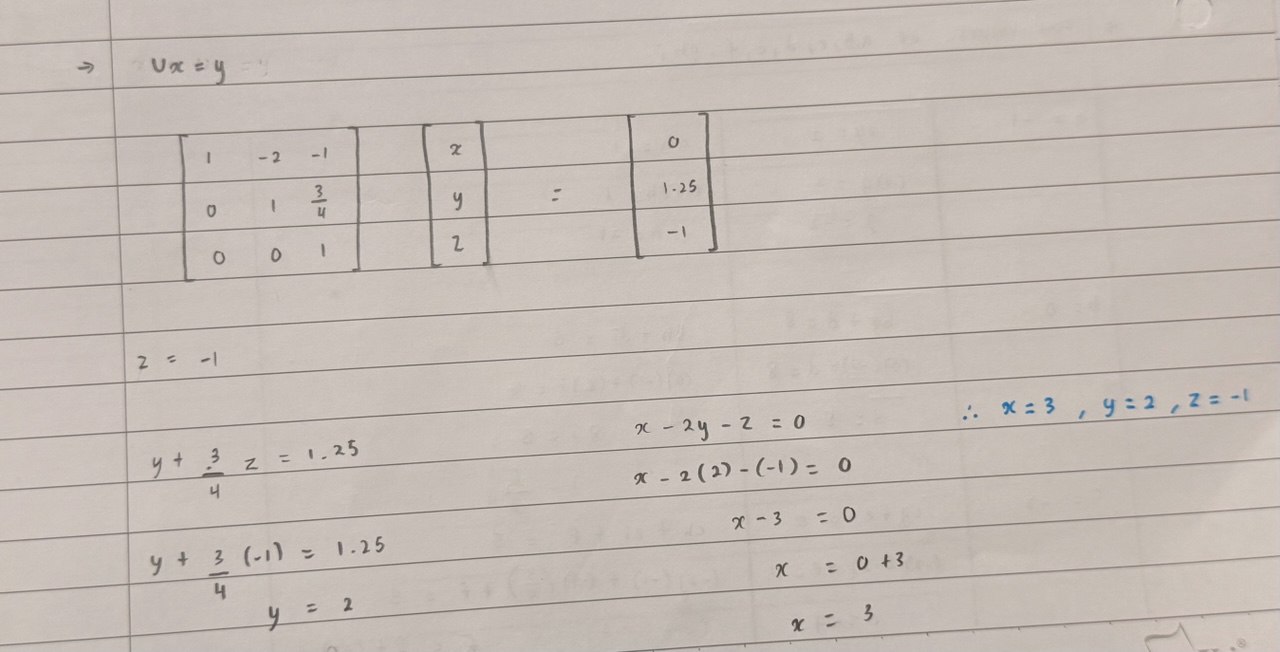 → Ux = y
[1 -2 -1] [x] [0]
[0 1 3/4] [y] = [1.25]
[0 0 1] [z] [-1]
z = -1
y + 3/4 z = 1.25
y + 3/4 (-1) = 1.25
y = 2
x - 2y - z = 0
x - 2(2) - (-1) = 0
x - 3 = 0
x = 0 + 3
x = 3
∴ x = 3 , y = 2 , z = -1